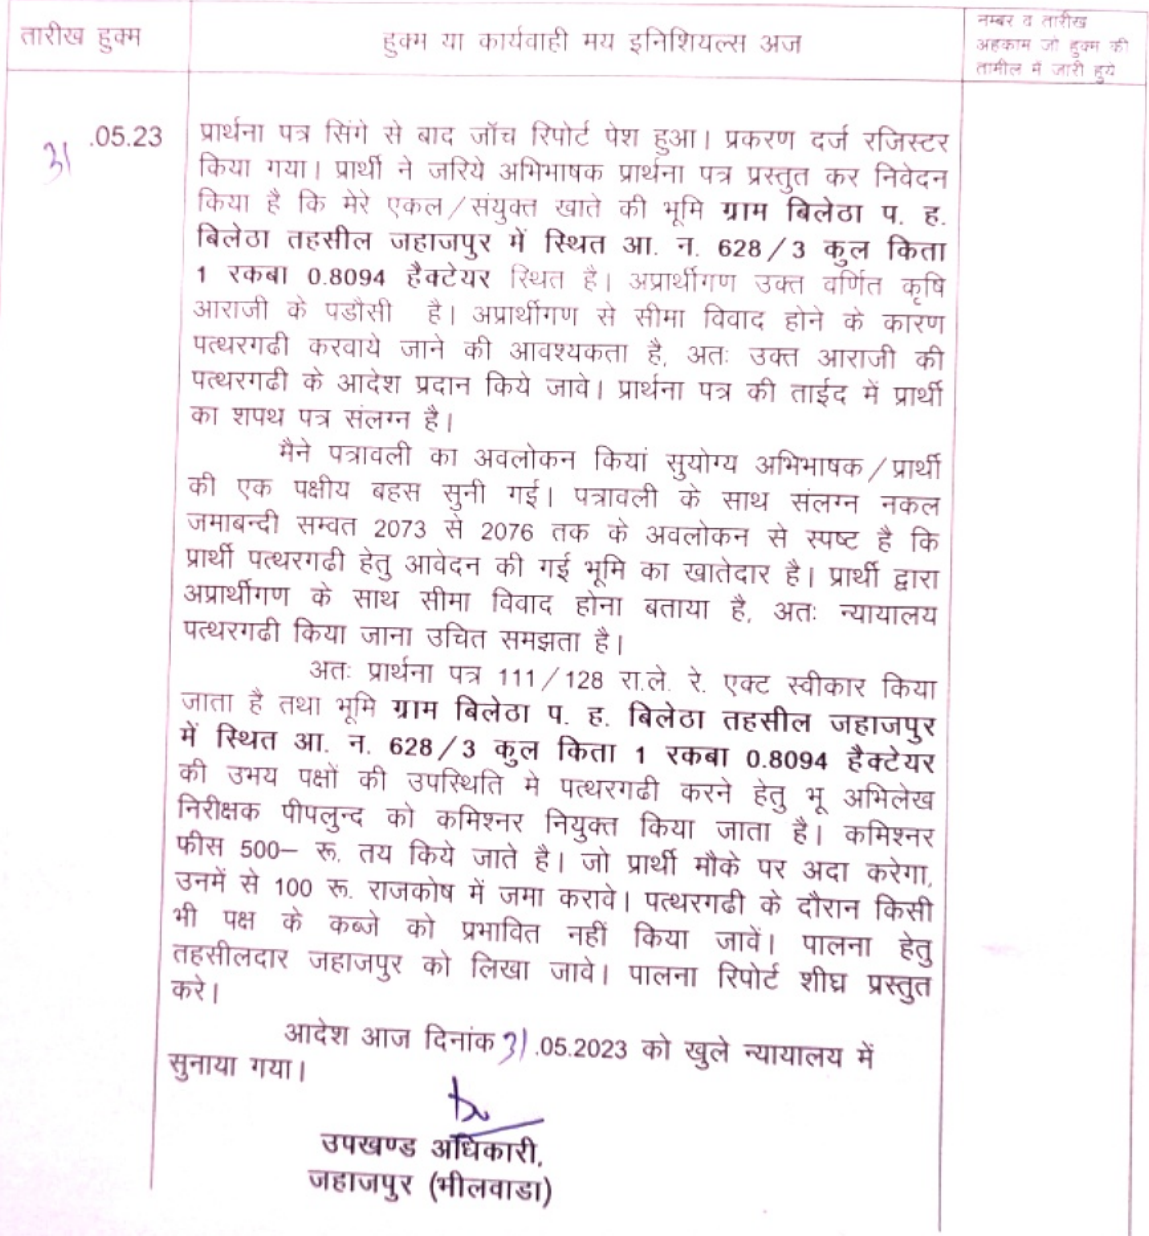 तारीख हुक्म
हुक्म या कार्यवाही मय इनिशियल्स अज
नम्बर व तारीख
अहकाम जो हुक्म की
तामील में जारी हुये
31.05.23
प्रार्थना पत्र सिंगे से बाद जॉच रिपोर्ट पेश हुआ। प्रकरण दर्ज रजिस्टर
किया गया। प्रार्थी ने जरिये अभिभाषक प्रार्थना पत्र प्रस्तुत कर निवेदन
किया है कि मेरे एकल/संयुक्त खाते की भूमि ग्राम बिलेठा प. ह.
बिलेठा तहसील जहाजपुर में स्थित आ. न. 628/3 कुल किता
1 रकबा 0.8094 हैक्टेयर स्थित है। अप्रार्थीगण उक्त वर्णित कृषि
आराजी के पडौसी है। अप्रार्थीगण से सीमा विवाद होने के कारण
पत्थरगढी करवाये जाने की आवश्यकता है, अतः उक्त आराजी की
पत्थरगढी के आदेश प्रदान किये जावे। प्रार्थना पत्र की ताईद में प्रार्थी
का शपथ पत्र संलग्न है।
मैने पत्रावली का अवलोकन कियां सुयोग्य अभिभाषक/प्रार्थी
की एक पक्षीय बहस सुनी गई। पत्रावली के साथ संलग्न नकल
जमाबन्दी सम्वत 2073 से 2076 तक के अवलोकन से स्पष्ट है कि
प्रार्थी पत्थरगढी हेतु आवेदन की गई भूमि का खातेदार है। प्रार्थी द्वारा
अप्रार्थीगण के साथ सीमा विवाद होना बताया है, अतः न्यायालय
पत्थरगढी किया जाना उचित समझता है।
अतः प्रार्थना पत्र 111/128 रा.ले. रे. एक्ट स्वीकार किया
जाता है तथा भूमि ग्राम बिलेठा प. ह. बिलेठा तहसील जहाजपुर
में स्थित आ. न. 628/3 कुल किता 1 रकबा 0.8094 हैक्टेयर
की उभय पक्षों की उपस्थिति मे पत्थरगढी करने हेतु भू अभिलेख
निरीक्षक पीपलुन्द को कमिश्नर नियुक्त किया जाता है। कमिश्नर
फीस 500– रू. तय किये जाते है। जो प्रार्थी मौके पर अदा करेगा,
उनमें से 100 रू. राजकोष में जमा करावे। पत्थरगढी के दौरान किसी
भी पक्ष के कब्जे को प्रभावित नहीं किया जावें। पालना हेतु
तहसीलदार जहाजपुर को लिखा जावे। पालना रिपोर्ट शीघ्र प्रस्तुत
करे।
आदेश आज दिनांक 31.05.2023 को खुले न्यायालय में
सुनाया गया।
उपखण्ड अधिकारी,
जहाजपुर (भीलवाडा)